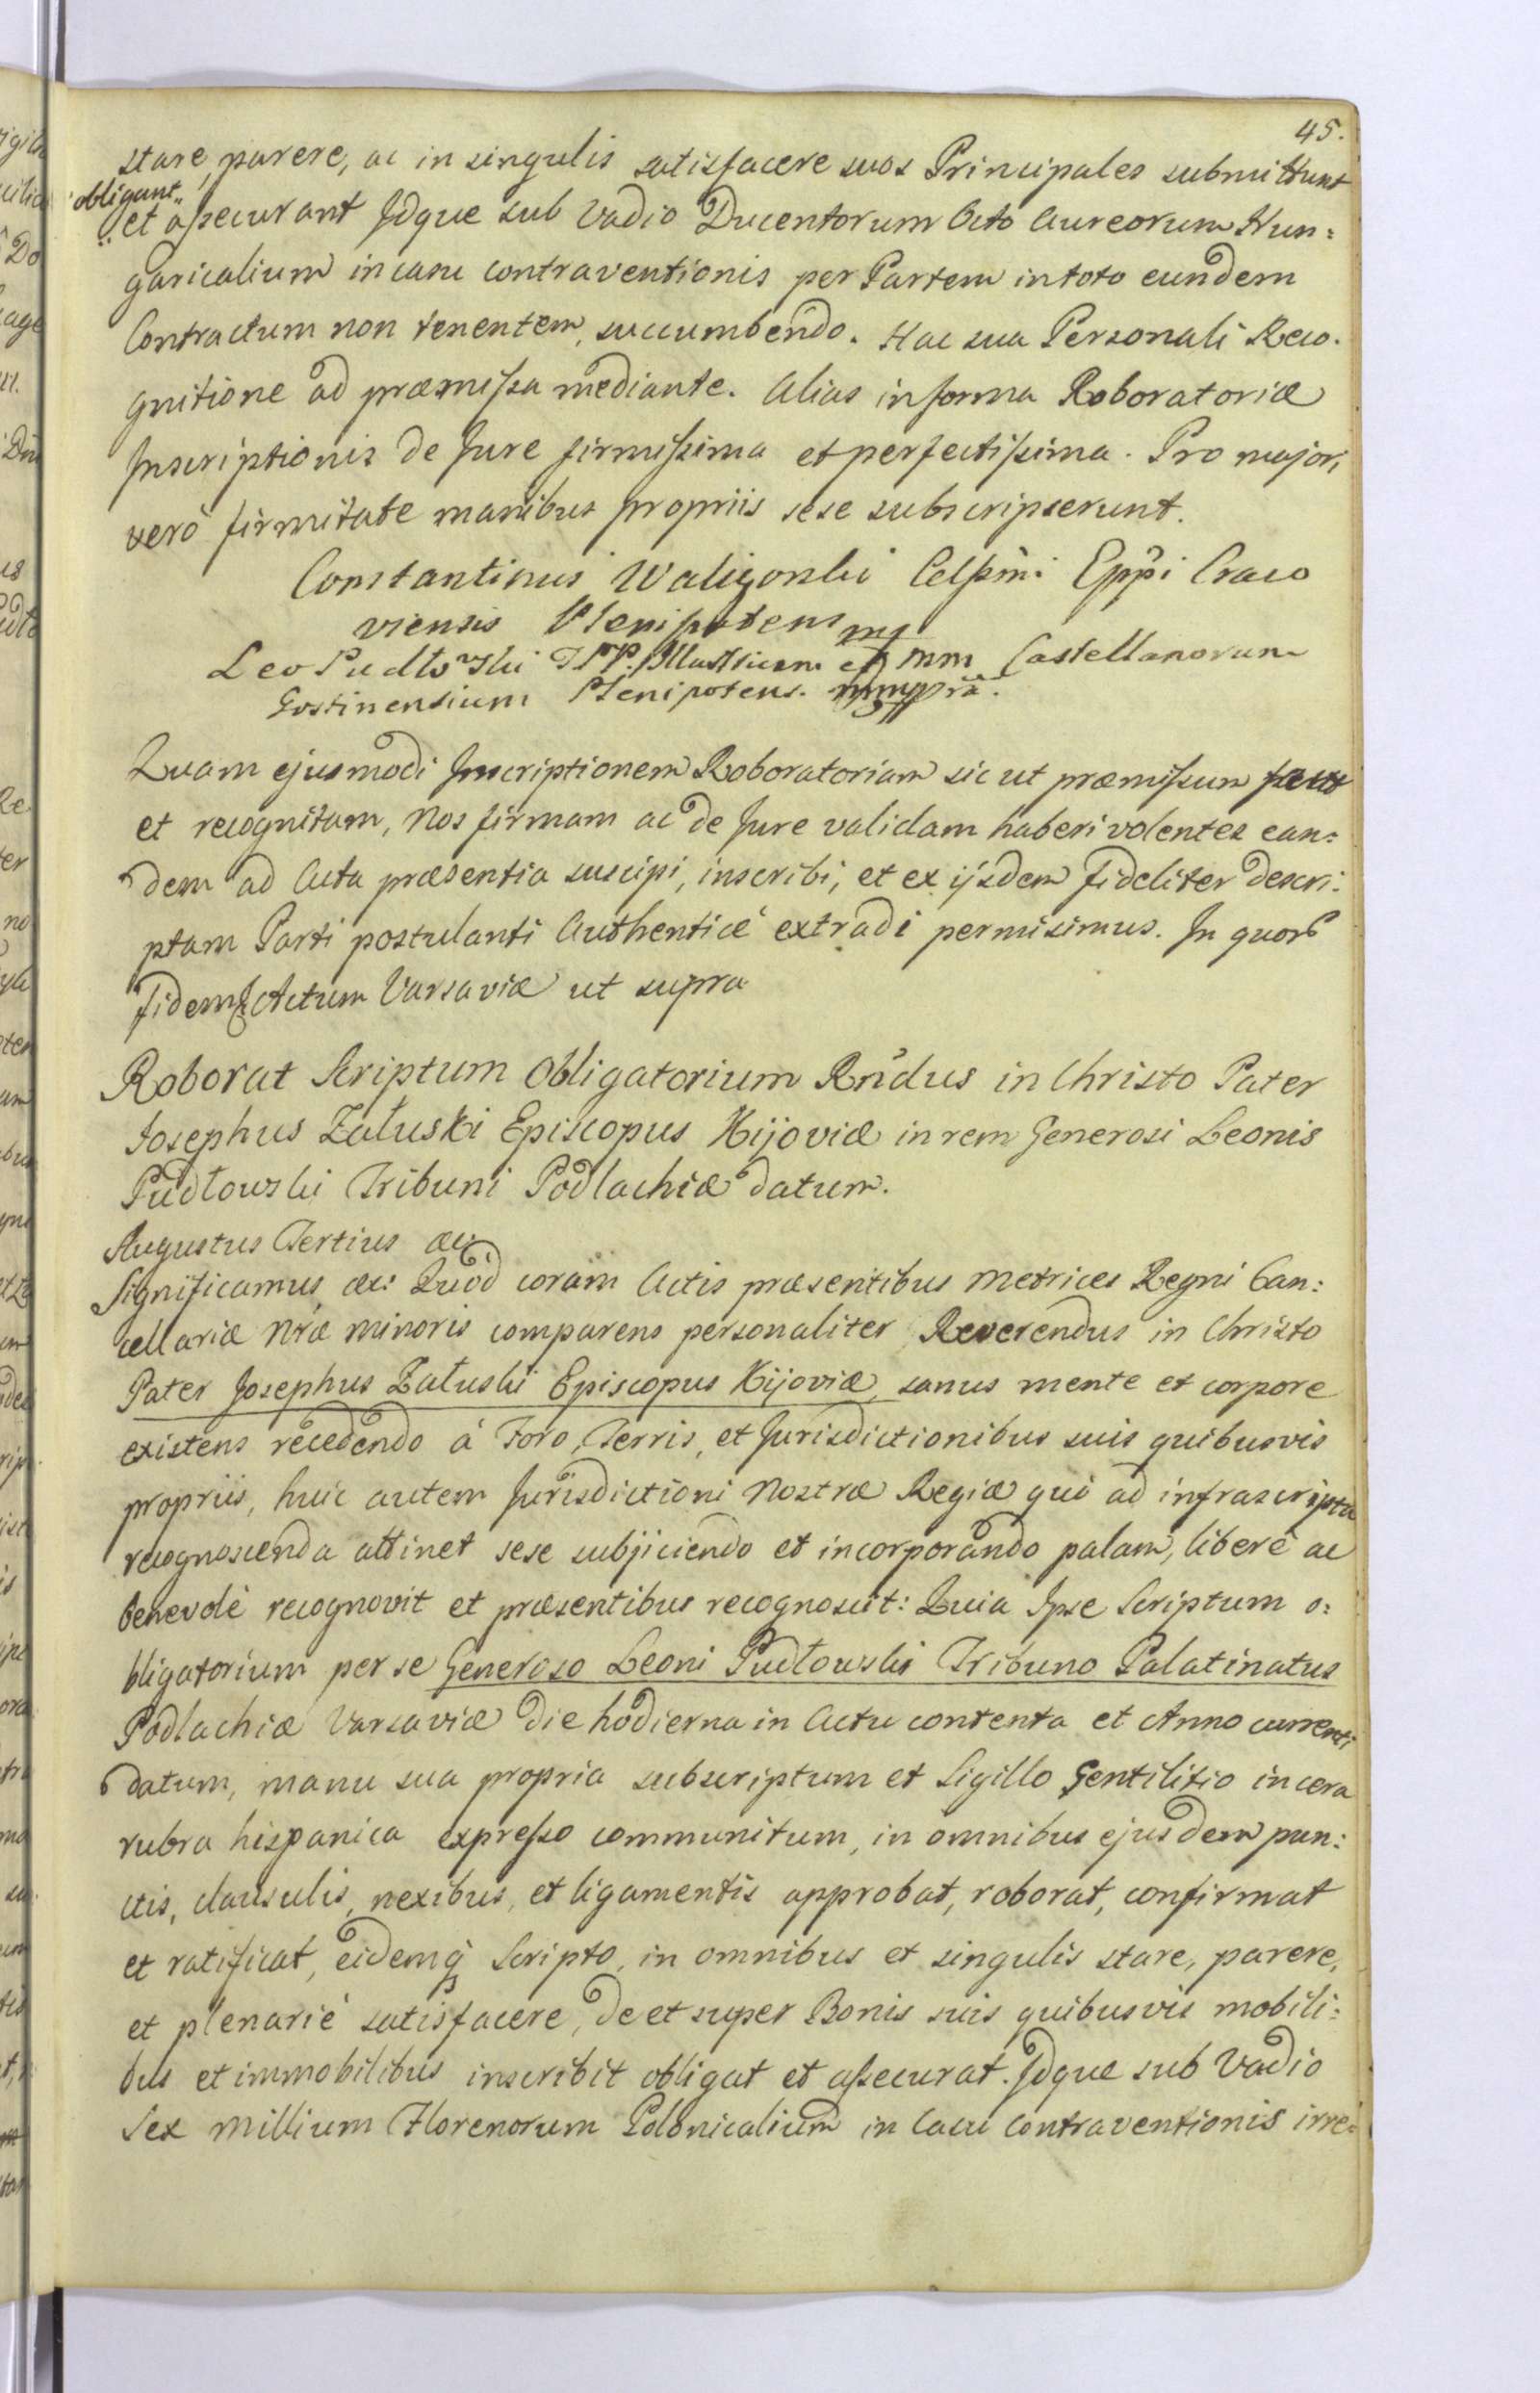 45.
stare, parere, ac in singulis satisfacere suos Principales submittunt
obligant
et assecurant Idque sub Vadio Ducentorum Octo Aureorum Hun:
garicalium in casu contraventionis per Partem in toto eundem
Contractum non tenentem, succumbendo. Hac sua Personali Reco.
gnitione ad præmissa mediante. Alias in forma Roboratoriæ
Inscriptionis de Jure firmissima et perfectissima. Pro majori
verò firmitate manibus propriis sese subscripserunt.
Constantinus Waligorski Celssmi Eppi Craco
viensis Plenipotens mp
Leo Pudłowski Illustrium et MM Castellanorum
Gostinensium Plenipotens. mppria.
Quam ejusmodi Inscriptionem Roboratoriam sic ut præmissum
et recognitam, Nos firmam ac de Jure validam haberi volentes ean:
dem ad Acta præsentia suscipi, inscribi, et ex ijsdem fideliter descri:
ptam Parti postulanti Authenticè extradi permisimus. In quorũ
fidem Actum Varsaviæ ut supra
Roborat Scriptum Obligatorium Rñdus in Christo Pater
Josephus Załuski Episcopus Kijoviæ in rem Generosi Leonis
Pudłowski Tribuni Podlachiæ datum.
Augustus Tertius &c:
Significamus &c: Quòd coram Actis præsentibus Metrices Regni Can:
cellariæ Nræ Minoris comparens personaliter Reverendus in Christo
Pater Josephus Załuski Episcopus Kijoviæ, sanus mente et corpore
existens recedendo à Foro, Terris, et Jurisdictionibus suis quibusvis
propriis, huic autem Jurisdictioni Nostræ Regiæ quò ad infrascripta
recognoscenda attinet sese subjiciendo et incorporando palam, liberè ac
benevolè recognovit et præsentibus recognoscit: Quia Ipse Scriptum o:
bligatorium per se Generoso Leoni Pudłowski Tribuno Palatinatus
Podlachiæ Varsaviæ die hodierna in Actu contenta et Anno currenti
datum, manu sua propria subscriptum et Sigillo Gentilitio in cera
rubra hispanica expresso communitum, in omnibus ejusdem pun:
ctis, clausulis, nexibus, et ligamentis approbat, roborat, confirmat
et ratificat, eidemq; Scripto, in omnibus et singulis stare, parere,
et plenariè satisfacere, de et super Bonis suis quibusvis mobili:
bus et immobilibus inscribit obligat et assecurat. Idque sub Vadio
Sex Millium Florenorum Polonicalium in Casu Contraventionis irre: